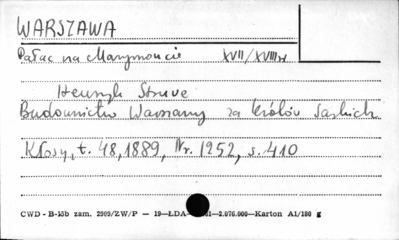 WARSZAWA
Pałac na Marymoncie XVII/XVIII w
Henryk Struve
Budownictwo Warszawy za Królów Saskich
Kłosy, t. 48, 1889, Nr. 1252, s. 410
CWD - B-15b zam. 2909/ZW/P — 19—ŁDA— —2.076.000—Karton A1/180 g